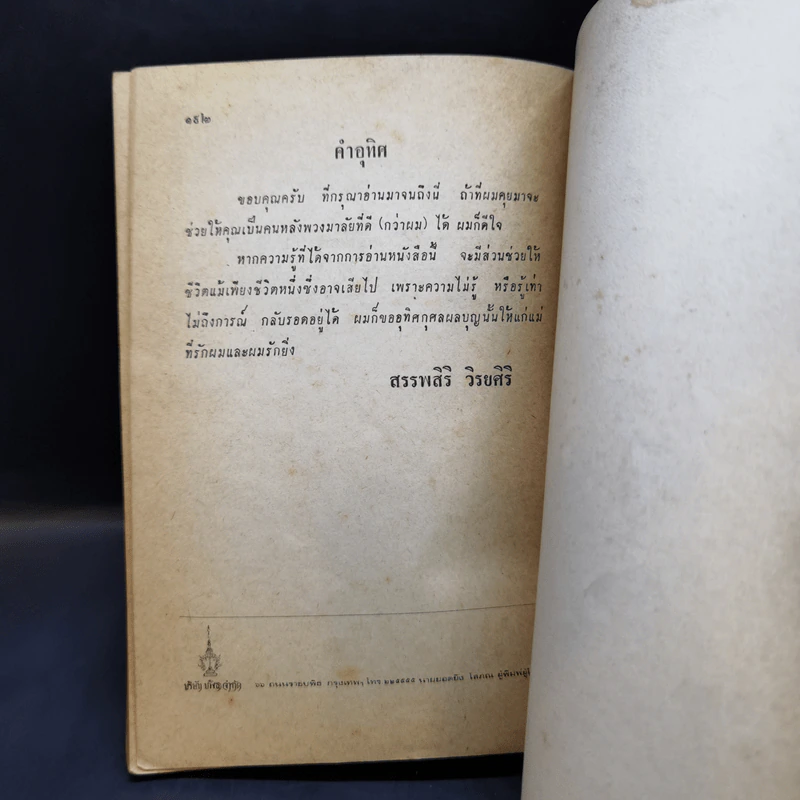 ๑๕๒
คำอุทิศ
ขอบคุณครับ ที่กรุณาอ่านมาจนถึงนี่ ถ้าที่ผมคุยมาจะ
ช่วยให้คุณเป็นคนหลังพวงมาลัยที่ดี (กว่าผม) ได้ ผมก็ดีใจ
หากความรู้ที่ได้จากการอ่านหนังสือนี้ จะมีส่วนช่วยให้
ชีวิตแม้เพียงชีวิตหนึ่งซึ่งอาจเสียไป เพราะความไม่รู้ หรือรู้เท่า
ไม่ถึงการณ์ กลับรอดอยู่ได้ ผมก็ขออุทิศกุศลผลบุญนั้นให้แก่แม่
ที่รักผมและผมรักยิ่ง
สรรพสิริ วิรยศิริ
กรุงเทพฯ โทร